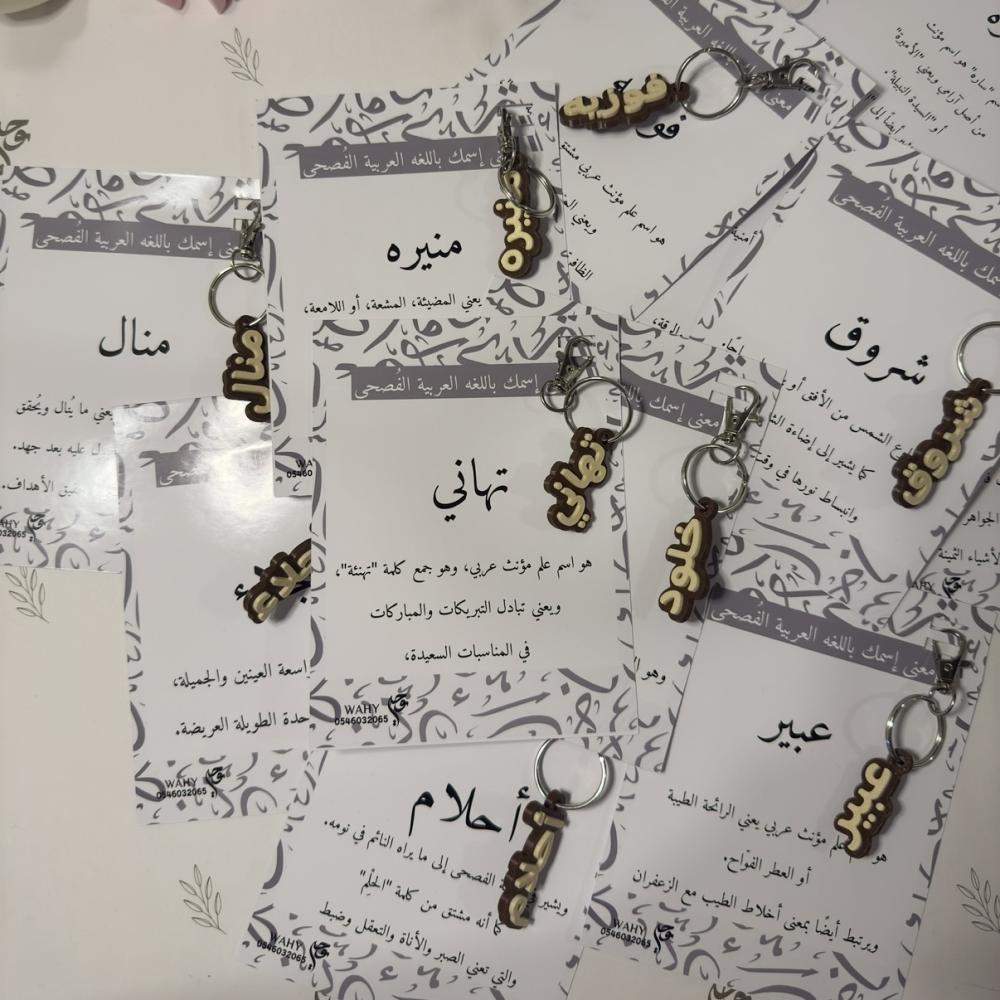 "سارة" هو اسم مؤنث
من أصل آرامي ويعني "الأميرة"
أو "السيدة النبيلة".
اسمك باللغه العربية الفُصحى
فوزيه
هو اسم علم مؤنث عربي
ويعني
معنى إسمك باللغه العربية الفُصحى
منيره
منيره
يعني المضيئة، المشعة، أو اللامعة،
معنى إسمك باللغه العربية الفُصحى
منال
منال
يعني ما يُنال ويُحقق
عليه بعد جهد.
الأهداف.
إسمك باللغه العربية الفُصحى
شروق
شروق
الشمس من الأفق أو
كما يشير إلى إضاءة
وانبساط نورها في وقت
إسمك باللغه العربية الفُصحى
تهاني
تهاني
هو اسم علم مؤنث عربي، وهو جمع كلمة "تهنئة"،
ويعني تبادل التبريكات والمباركات
في المناسبات السعيدة،
WAHY
0546032065
وحي
معنى إسمك
خلود
وهو
الجواهر
الأشياء الثمينة
نجلاء
واسعة العينين والجميلة،
الطويلة العريضة.
WAHY
0546032065
معنى إسمك باللغه العربية الفُصحى
عبير
عبير
هو علم مؤنث عربي يعني الرائحة الطيبة
أو العطر الفوّاح.
ويرتبط أيضًا بمعنى أخلاط الطيب مع الزعفران
WAHY
0546032065
أحلام
أحلام
الفصحى إلى ما يراه النائم في نومه.
كما أنه مشتق من كلمة "الحُلم"
والتي تعني الصبر والأناة والتعقل وضبط
WAHY
0546032065